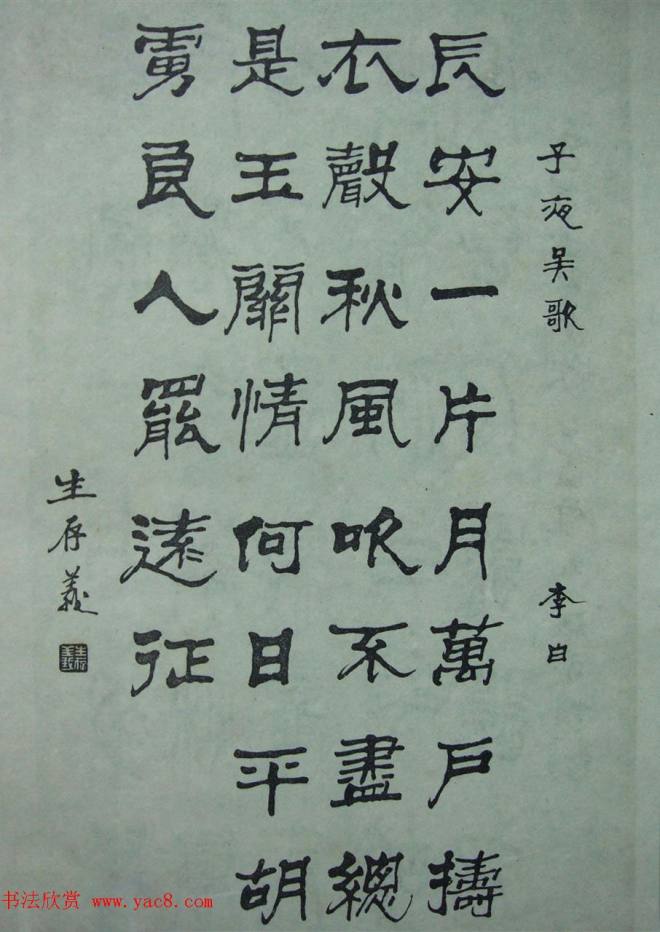 子夜吴歌 李白
長安一片月萬戶擣
衣聲秋風吹不盡總
是玉關情何日平胡
虜良人罷遠征
生存義
书法欣赏 www.yac8.com